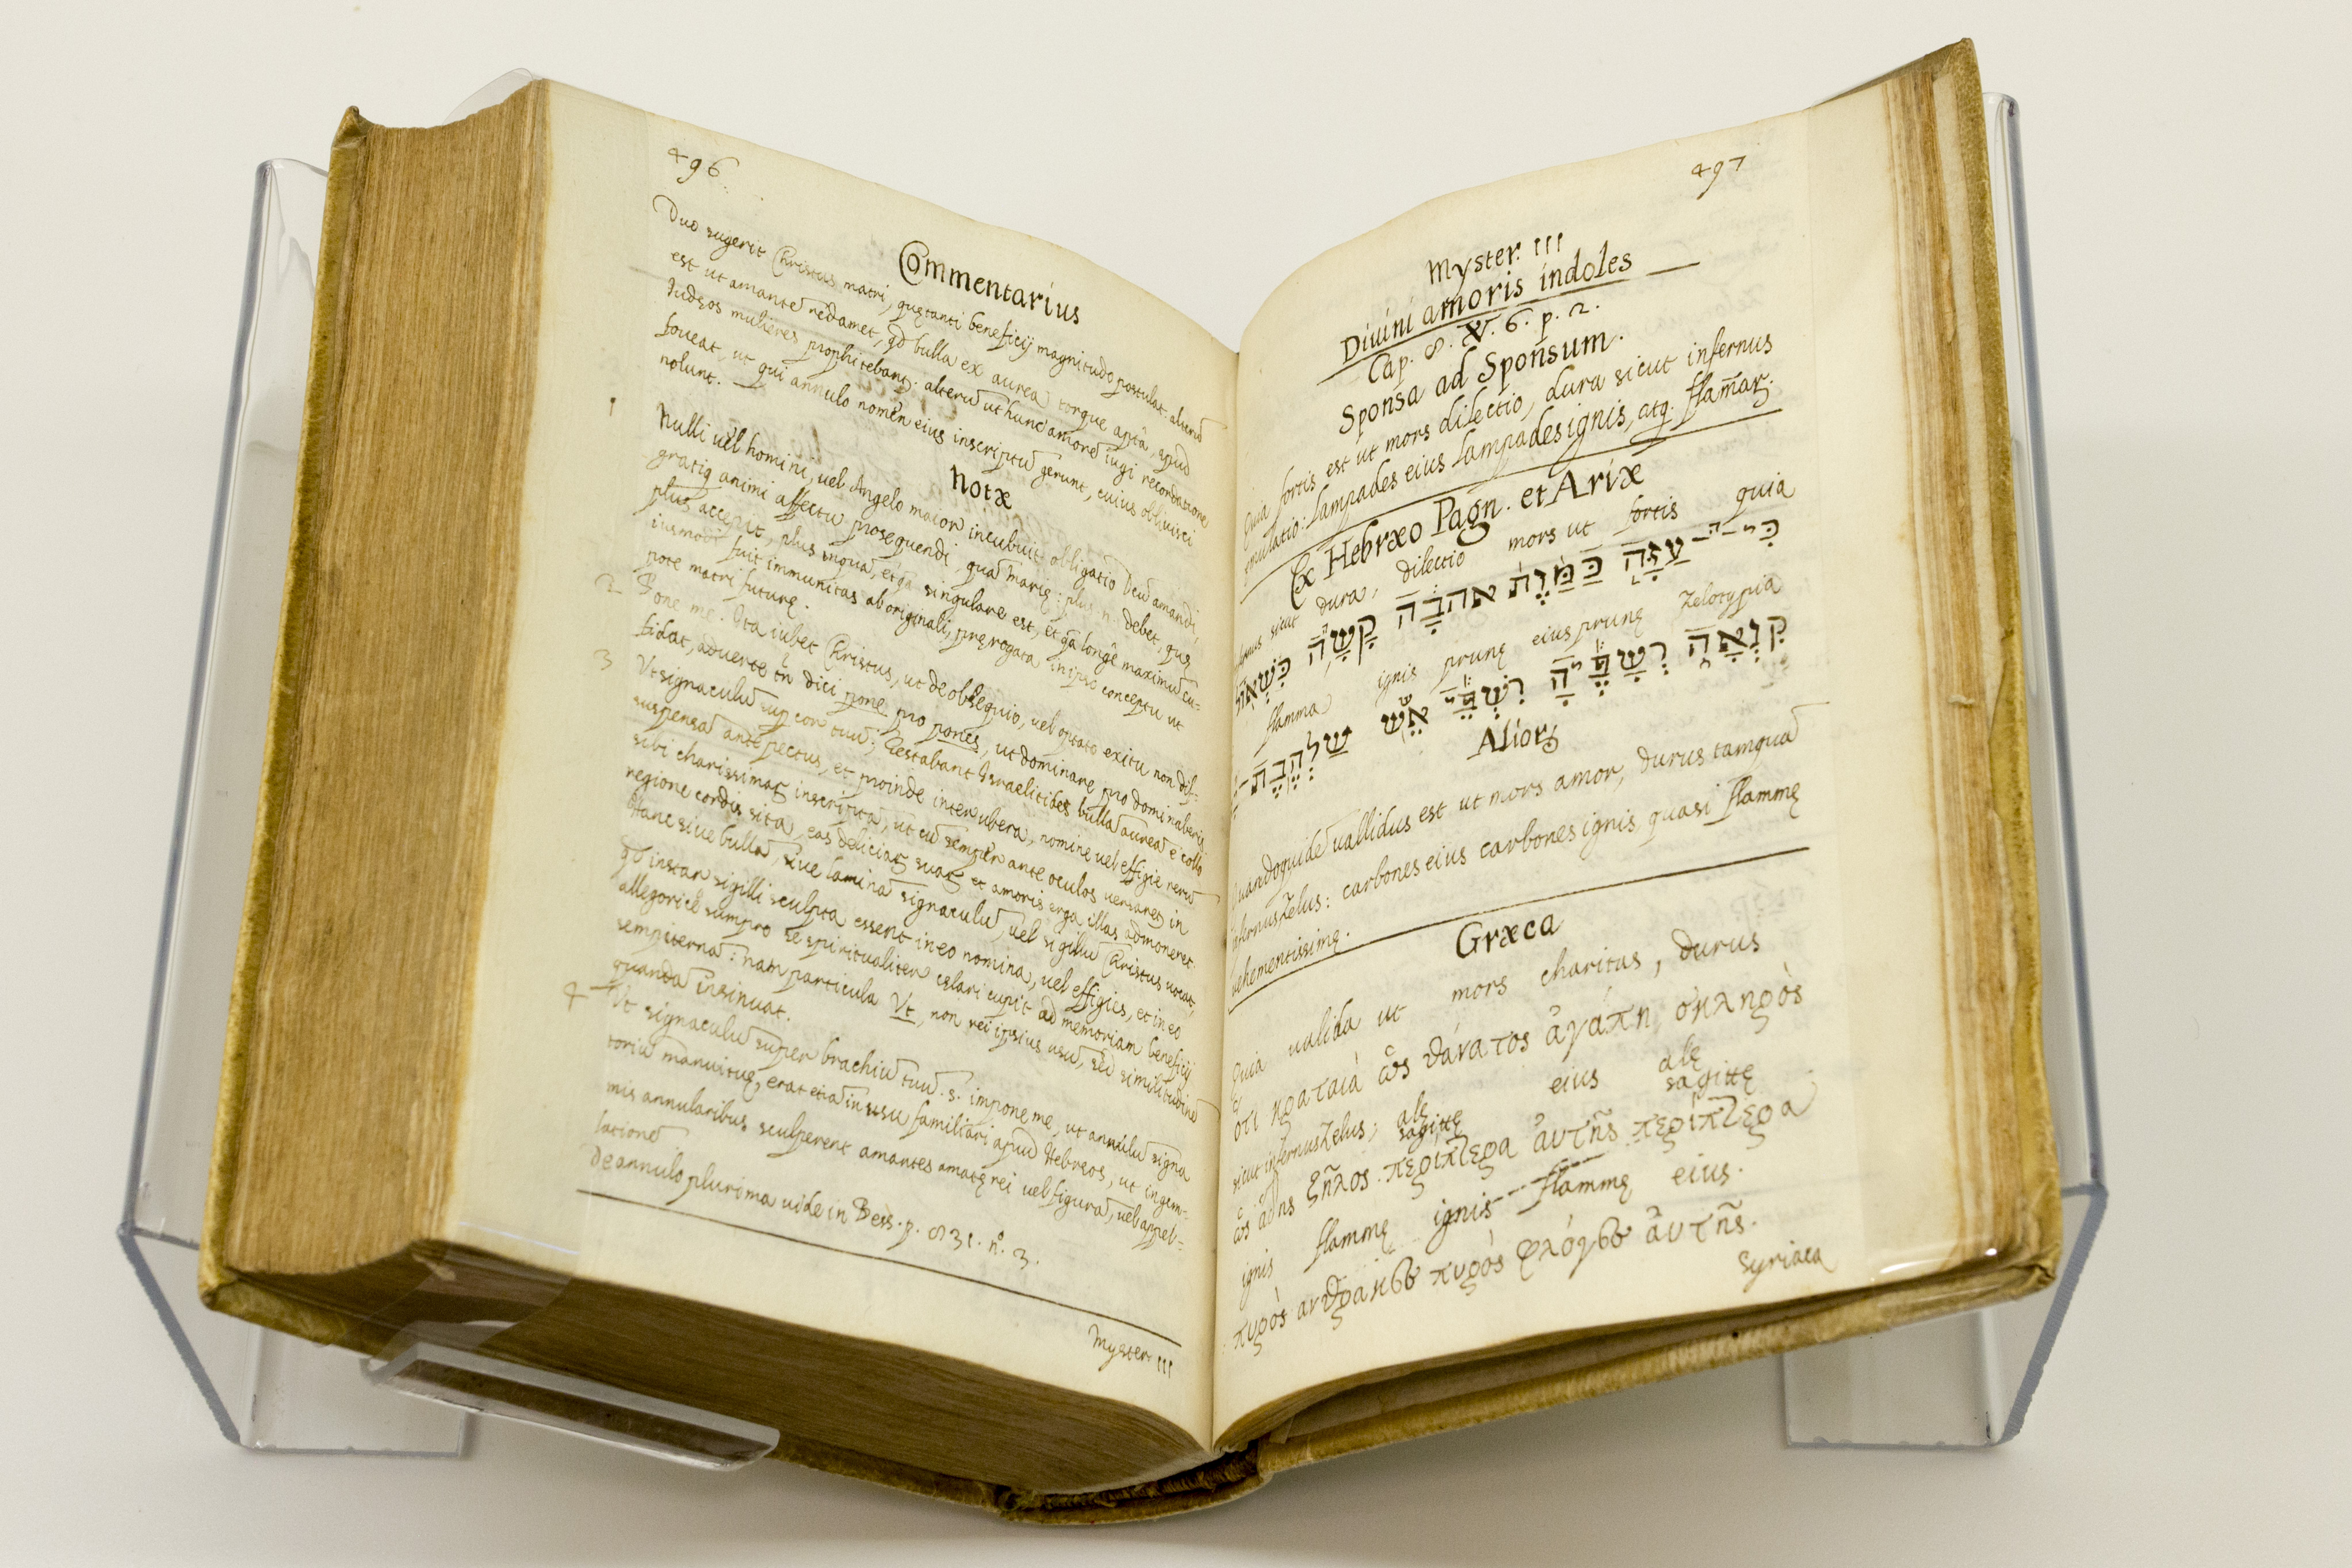 496
Commentarius
Duo sugerit Christus matri, quę tanti beneficij magnitudo postulat. alterū
est ut amantē redamet, qđ bulla ex aurea torque aptā, apud
Iudęos mulieres prophitebant. alterū ut hunc amorē iugi recordatione
foueat, ut qui annulo nomen eius inscriptū gerunt, cuius obliuisci
nolunt.
Notæ
1 Nulli uel homini, uel Angelo maior incubuit obligatio Deū amandi,
gratię animi affectu prosequendi, quā Marię: plus n. debet, quę
plus accepit, plus inquā, et qa singulare est, et qa longè maximū eu-
iusmodi fuit immunitas ab originali, prę rogata in ipso conceptu ut
pote matri futurę.
2 Pone me. Ita iubet Christus, ut de obsequio, uel optato exitu non dif-
fidat, aduerte tn dici pone pro pones, ut dominare pro dominaberis
3 Vt signaculū sup cor tuū; Gestabant Israelitides bullā aureā è collo
suspensā ante pectus, et proinde inter ubera, nomine uel effigie rerū
sibi charissimaȝ inscriptā, ut cū semper ante oculos uersaret in
regione cordis sita, eas deliciaȝ suaȝ et amoris erga illas admoneret
Hanc siue bullā, siue laminā signaculū, uel sigillū Christus uocat,
qđ instar sigilli sculpta essent in eo nomina, uel effigies, et in eo
allegoricè sumpro se spiritualiter celari cupit ad memoriam beneficij
sempiternā: nam particula Vt, non rei ipsius usū, sed similitudinē
quandā insinuat.
4 Vt signaculū super brachiū tuū. s. impone me, ut annulū signa
toriū manui tuę, erat etiā in usu familiari apud Hebreos, ut in gem-
mis annularibus sculperent amantes amatę rei uel figurā, uel appel-
lationē
De annulo plurima uide in Bers. p. 831. nº. 3.
Myster III
497
Myster. III
Diuini amoris indoles
Cap. 8. V. 6. p. 2.
Sponsa ad Sponsum.
Quia fortis est ut mors dilectio, dura sicut infernus
mulatio: lampades eius lampades ignis, atq. flamar.
Ex Hebræo Pagn. et Ariæ
sicut dura, dilectio mors ut fortis quia
כִּי־ עַזָּה כַמָּוֶת אהבָה קָשָה כִשְׁאֹל
flamma ignis prunę eius prunę Zelotypia
קִנְאָה רְשָׁפֶּיהָ רִשְׁפֵּי אֵשׁ שַׁלְהֶבֶת־
Alior
Quandoquidē uallidus est ut mors amor, durus tamquā
infernus Zelus: carbones eius carbones ignis, quasi flammę
uehementissimę.
Græca
Quia ualida ut mors charitas, durus
ὅτι κραταιὰ ὡς θάνατος ἀγάπη σκληρὸς
sicut infernus Zelus; alę sagittę eius alę sagittę
ὡς ἅδης ζῆλος. περίπτερα ἀυτῆς περίπτερα
ignis flammę ignis flammę eius.
πυρὸς ανθρακες πυρὸς φλόγες ἀυτῆς.
Syriaca